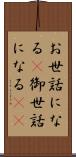 お世話にな
る￿￿御世話
になる￿￿